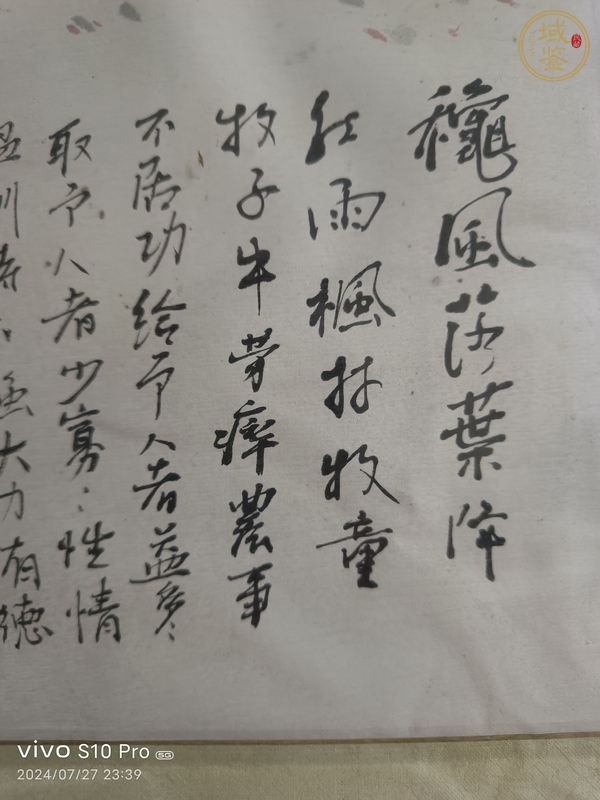 龝風落葉降
紅雨楓林牧童
牧子牛勞瘁農事
不居功給予人者益多〻
取予人者少寡〻性情
溫馴時〻強大力有德
域鉴
vivo S10 Pro 5G
2024/07/27 23:39